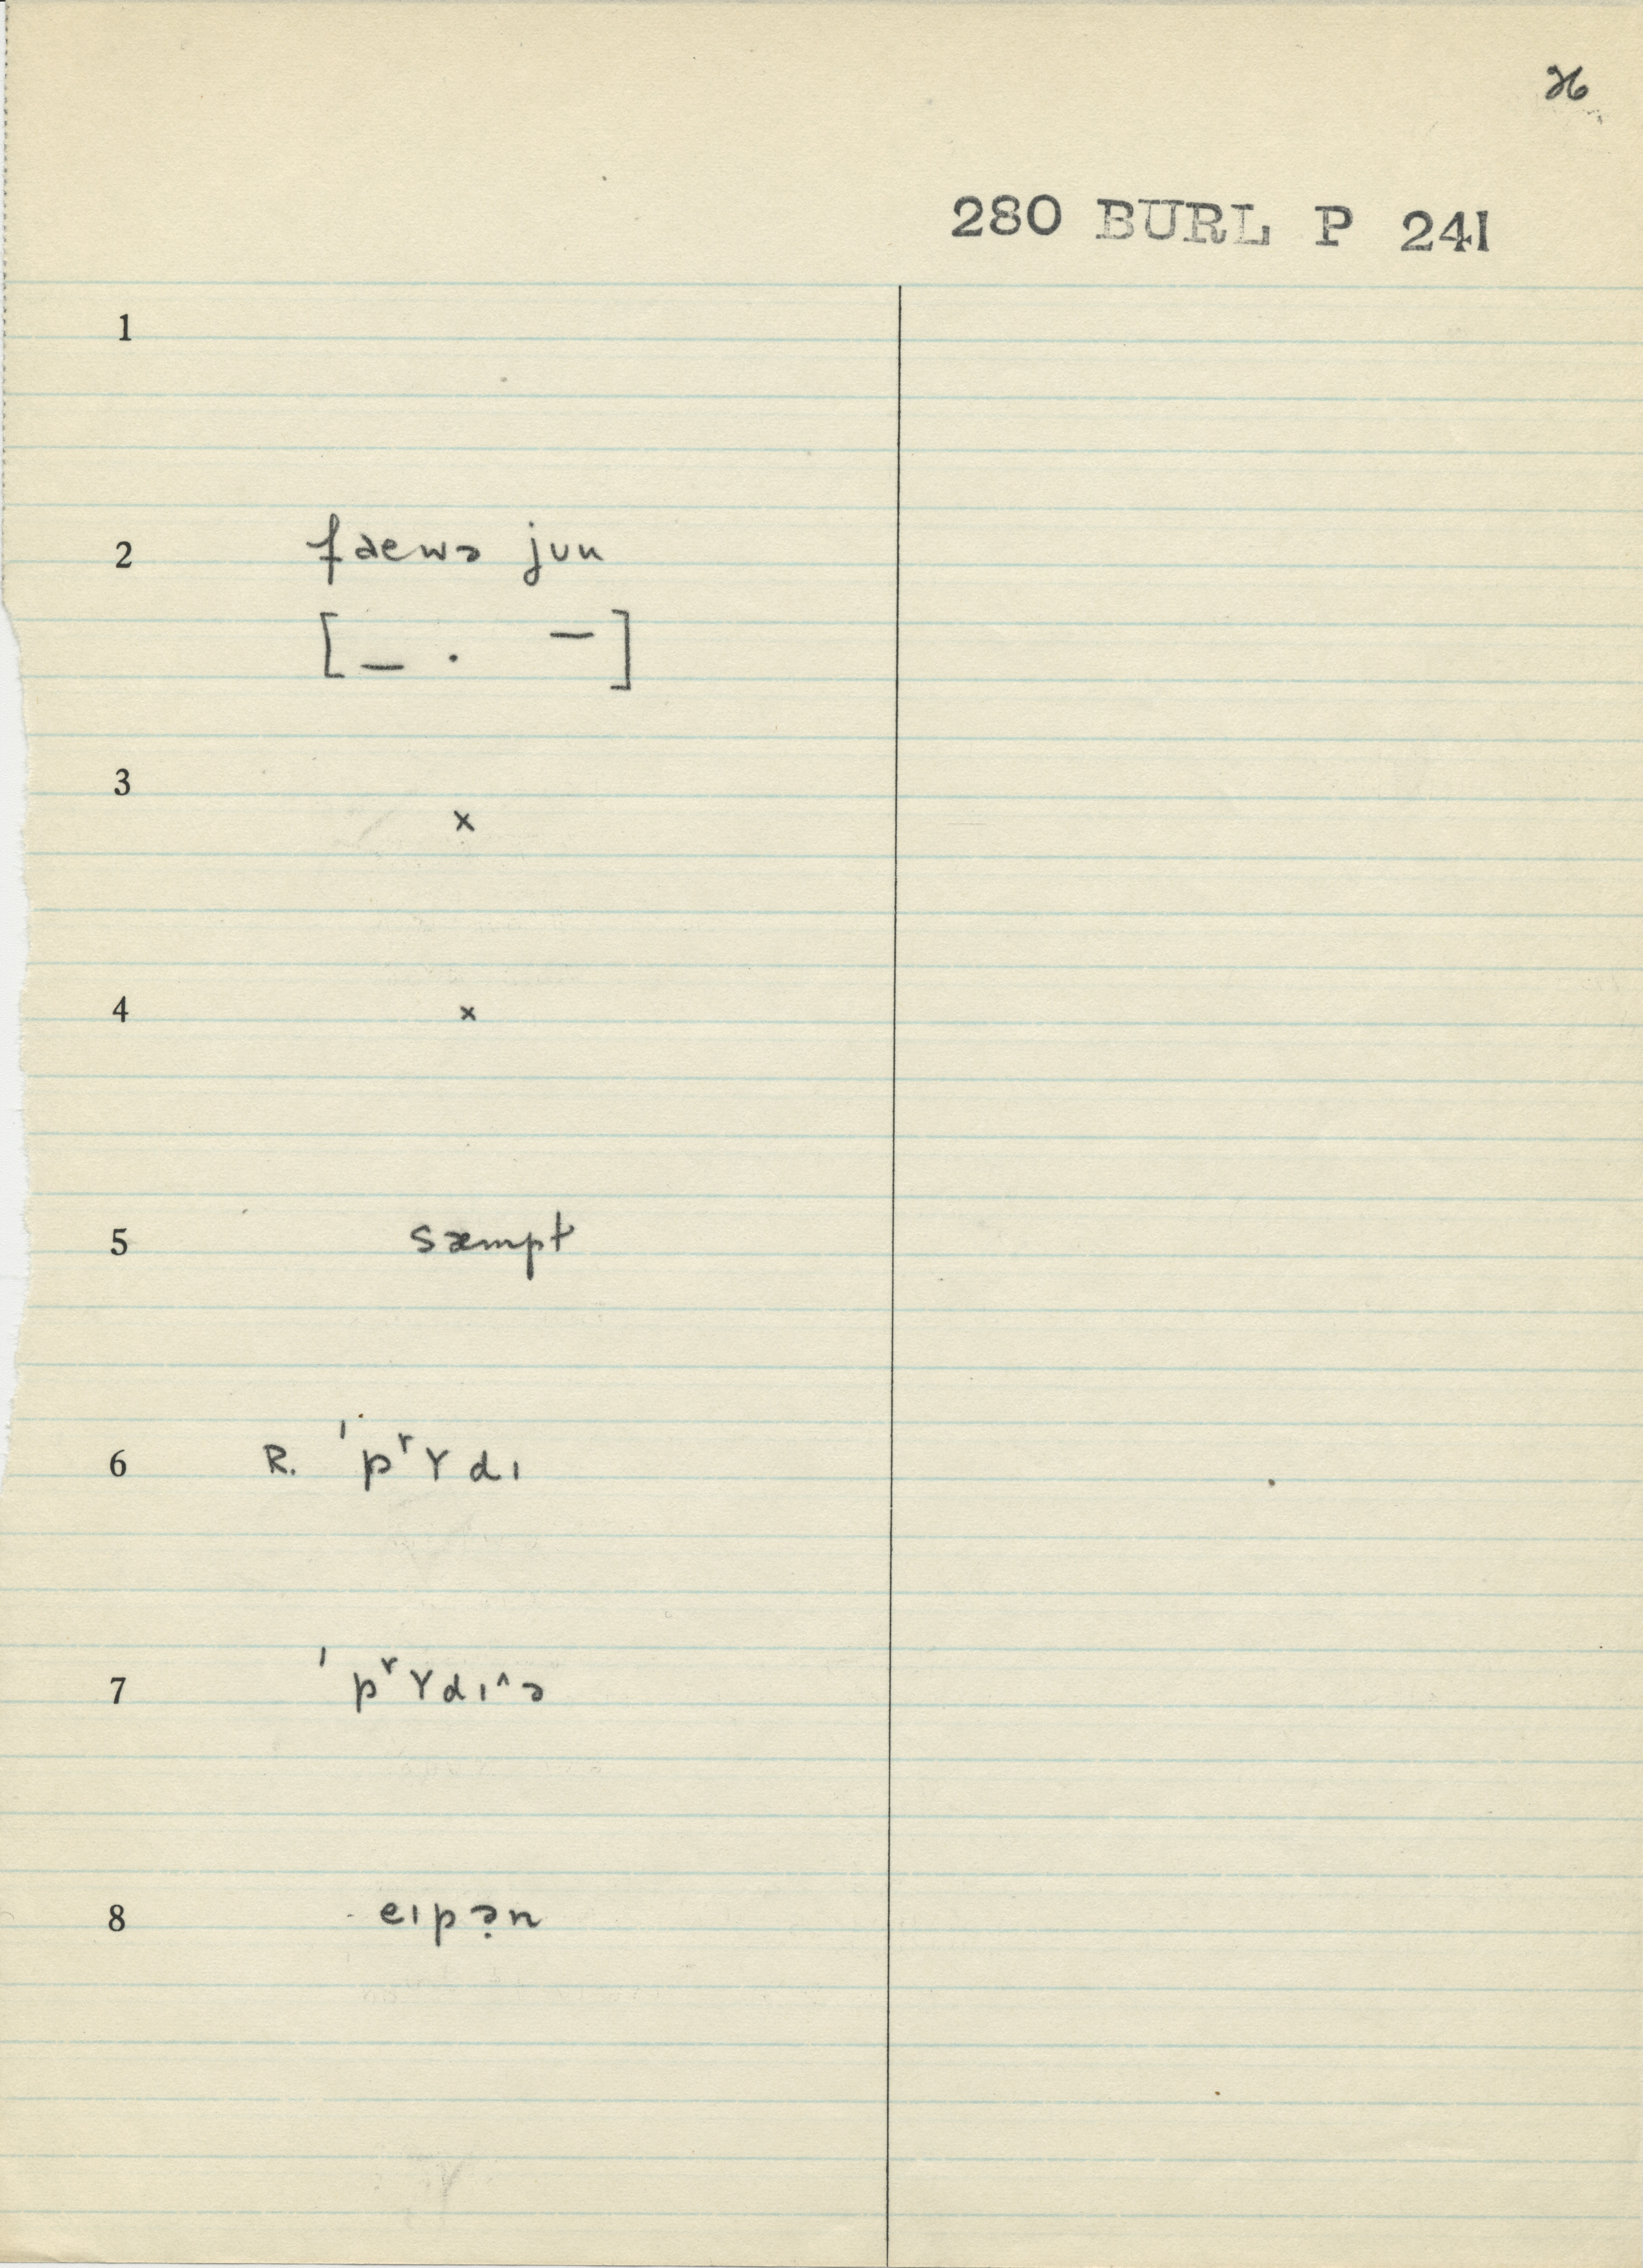 26
280 BURL P 241
1
2 faewə jun
[_ . –]
3 x
4 x
5 sæmpt
6 R. ˈpʳɤdɪ
7 ˈpʳɤdɪ^ə
8 eɪpə̣n